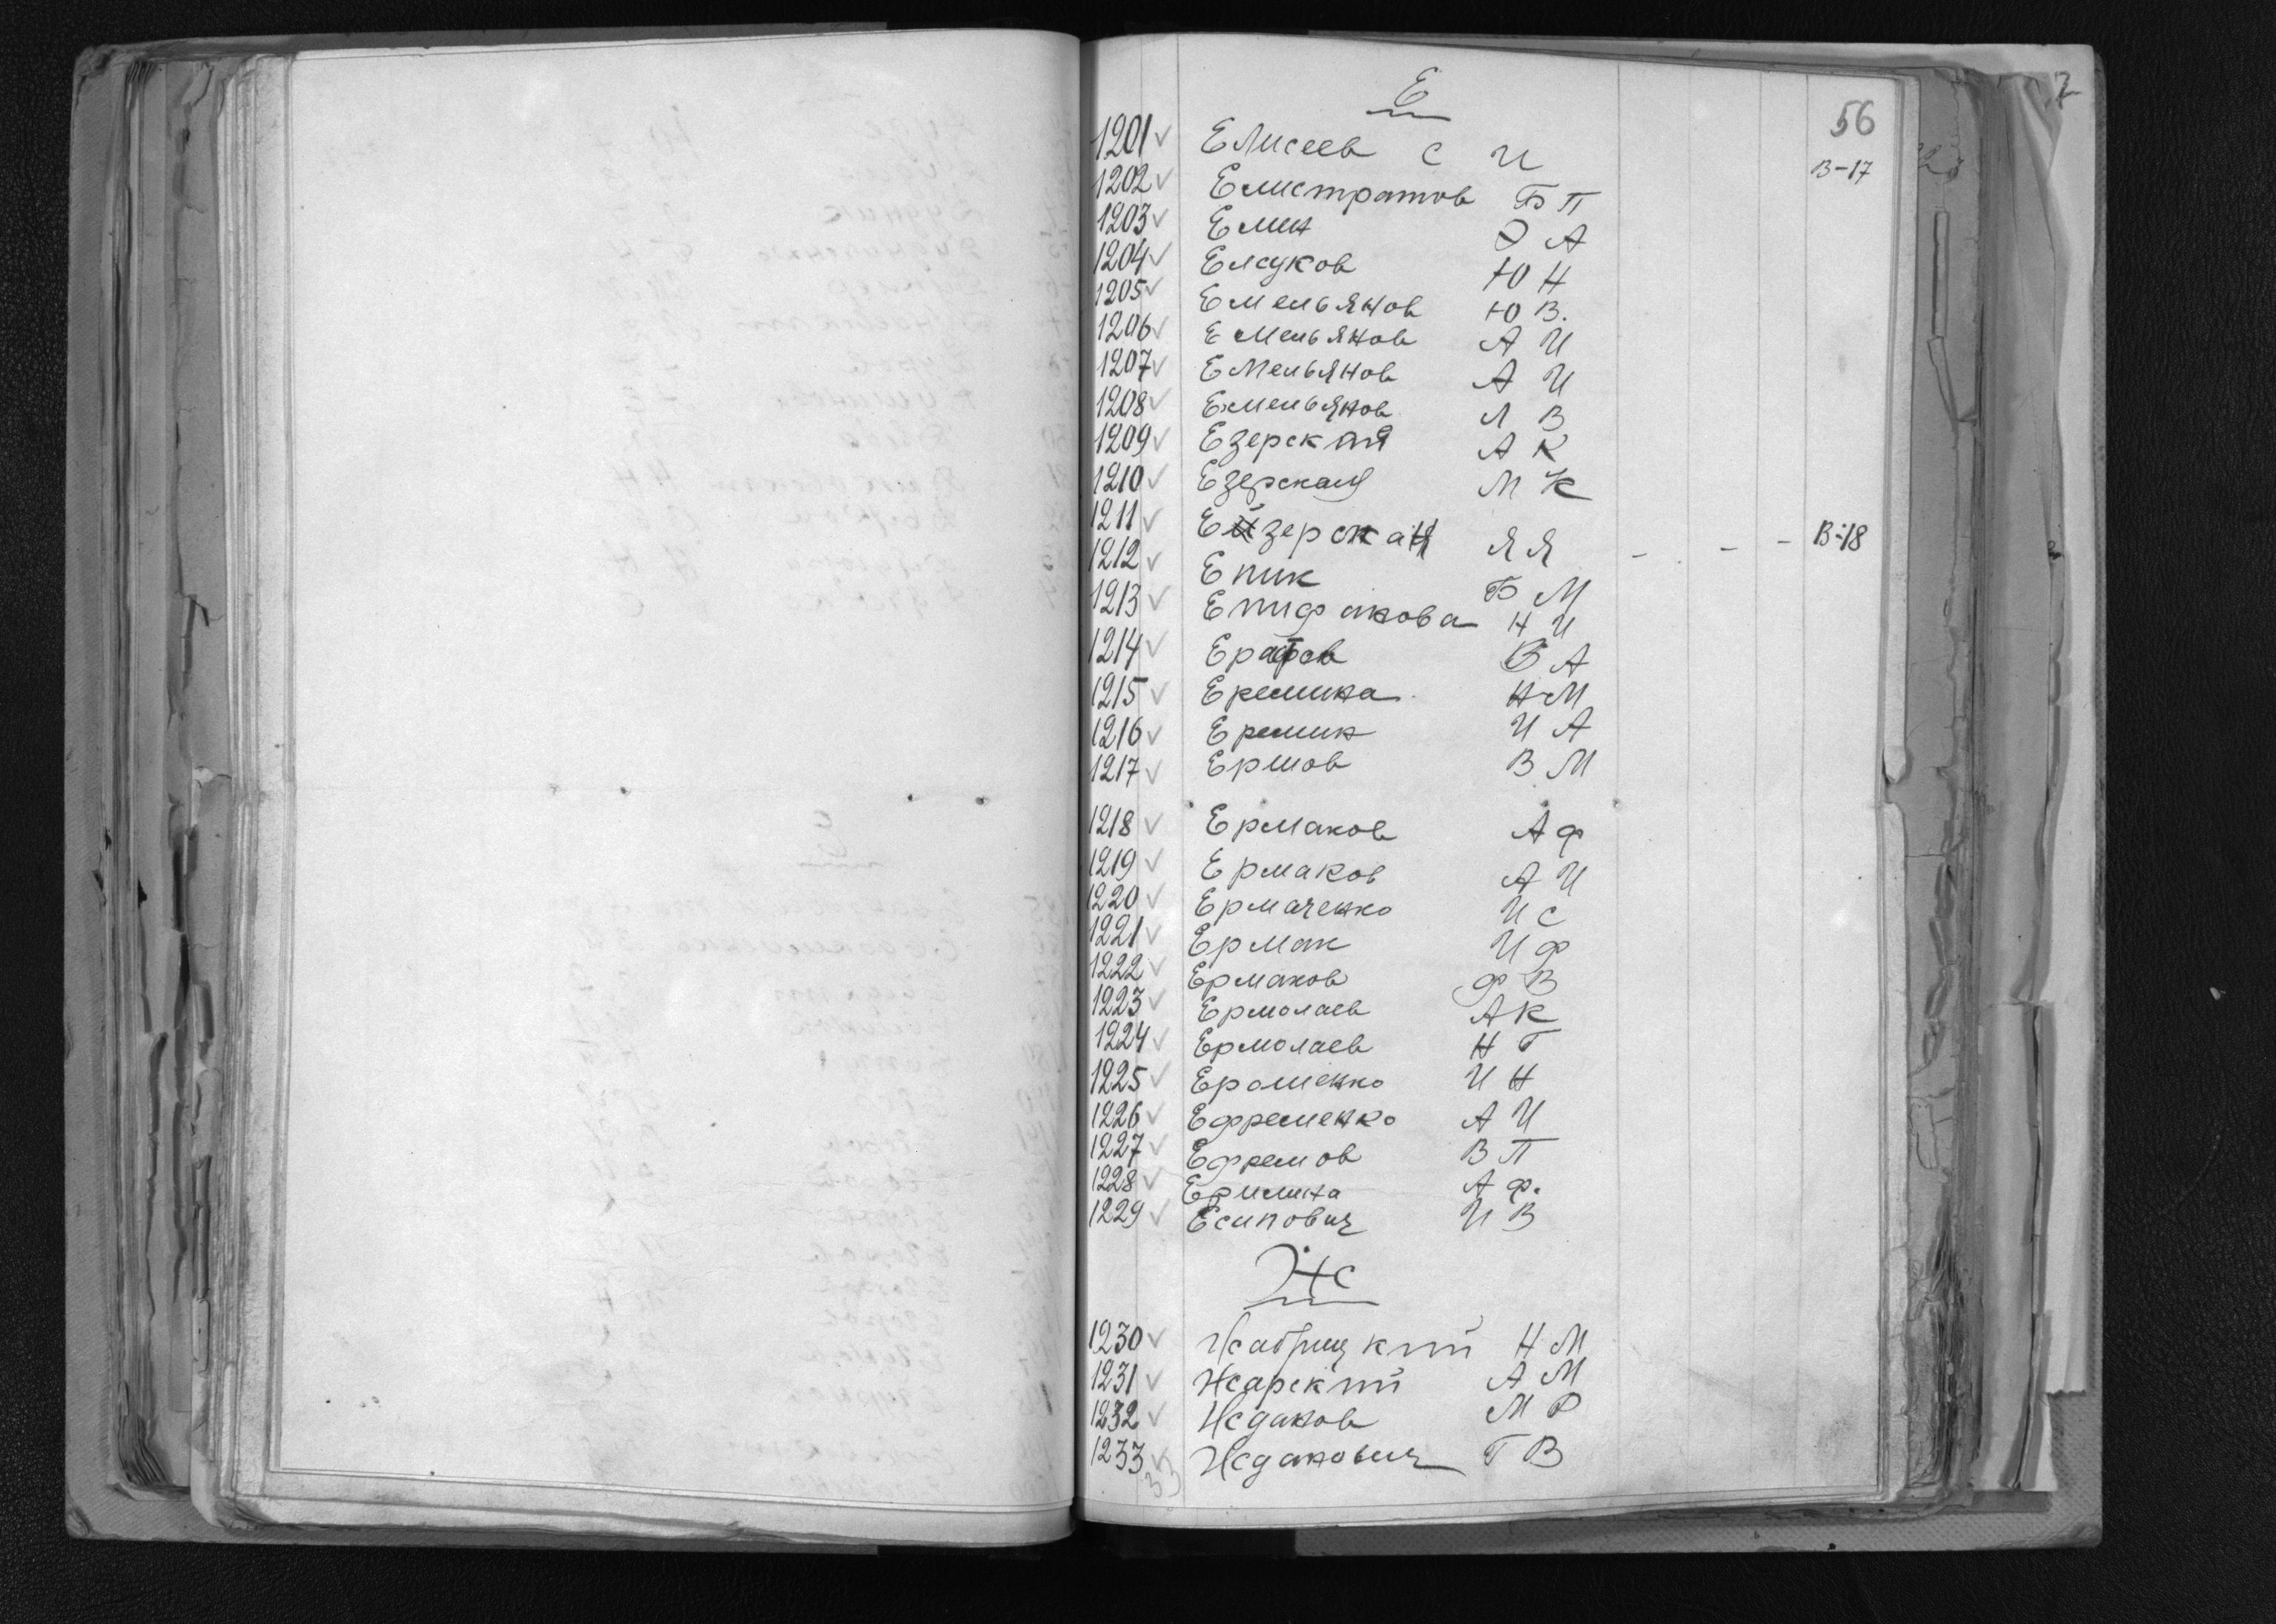 Е
56
1201 ✓ Елисеев С И
В-17
1202 ✓ Елистратов Б П
1203 ✓ Елин Э А
1204 ✓ Елсуков Ю Н
1205 ✓ Емельянов Ю В.
1206 ✓ Емельянов А И
1207 ✓ Емельянов А И
1208 ✓ Емельянов Л В
1209 ✓ Езерский А К
1210 ✓ Езерская М К
1211 ✓ Езерская Я Я - - - В-18
1212 ✓ Епик Б М
1213 ✓ Епифанова Н И
1214 ✓ А
1215 ✓ Еремина Н М
1216 ✓ Еремин И А
1217 ✓ Ершов В М
1218 ✓ Ермаков А Ф
1219 ✓ Ермаков А И
1220 ✓ Ермаченко И С
1221 ✓ Ермак И Ф
1222 ✓ Ермаков Ф В
1223 ✓ Ермолаев А К
1224 ✓ Ермолаев Н Г
1225 ✓ Ерошенко И Н
1226 ✓ Ефременко А И
1227 ✓ Ефремов В П
1228 ✓ А Ф.
1229 ✓ Есипович И В
Ж
1230 ✓ Жабрицкий Н М
1231 ✓ Жарский А М
1232 ✓ Жданов М Р
1233 ✓ Жданович Г В
33